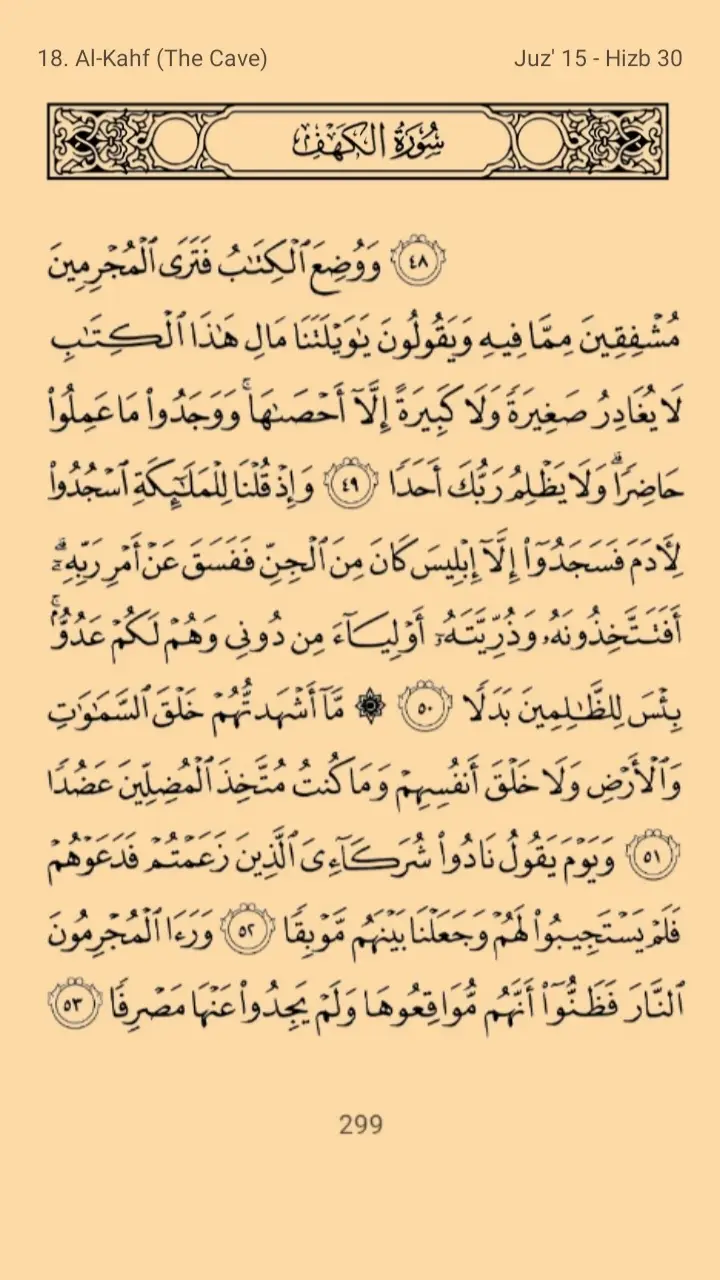 18. Al-Kahf (The Cave)
Juz' 15 - Hizb 30
سُورَةُ الكَهْفِ
٤٨ وَوُضِعَ ٱلْكِتَٰبُ فَتَرَى ٱلْمُجْرِمِينَ
مُشْفِقِينَ مِمَّا فِيهِ وَيَقُولُونَ يَٰوَيْلَتَنَا مَالِ هَٰذَا ٱلْكِتَٰبِ
لَا يُغَادِرُ صَغِيرَةً وَلَا كَبِيرَةً إِلَّآ أَحْصَىٰهَا ۚ وَوَجَدُوا۟ مَا عَمِلُوا۟
حَاضِرًا ۗ وَلَا يَظْلِمُ رَبُّكَ أَحَدًا ٤٩ وَإِذْ قُلْنَا لِلْمَلَٰٓئِكَةِ ٱسْجُدُوا۟
لِءَادَمَ فَسَجَدُوٓا۟ إِلَّآ إِبْلِيسَ كَانَ مِنَ ٱلْجِنِّ فَفَسَقَ عَنْ أَمْرِ رَبِّهِۦٓ ۗ
أَفَتَتَّخِذُونَهُۥ وَذُرِّيَّتَهُۥٓ أَوْلِيَآءَ مِن دُونِى وَهُمْ لَكُمْ عَدُوٌّۢ ۚ
بِئْسَ لِلظَّٰلِمِينَ بَدَلًا ٥٠ ۞ مَّآ أَشْهَدتُّهُمْ خَلْقَ ٱلسَّمَٰوَٰتِ
وَٱلْأَرْضِ وَلَا خَلْقَ أَنفُسِهِمْ وَمَا كُنتُ مُتَّخِذَ ٱلْمُضِلِّينَ عَضُدًا
٥١ وَيَوْمَ يَقُولُ نَادُوا۟ شُرَكَآءِىَ ٱلَّذِينَ زَعَمْتُمْ فَدَعَوْهُمْ
فَلَمْ يَسْتَجِيبُوا۟ لَهُمْ وَجَعَلْنَا بَيْنَهُم مَّوْبِقًا ٥٢ وَرَءَا ٱلْمُجْرِمُونَ
ٱلنَّارَ فَظَنُّوٓا۟ أَنَّهُم مُّوَاقِعُوهَا وَلَمْ يَجِدُوا۟ عَنْهَا مَصْرِفًا ٥٣
299